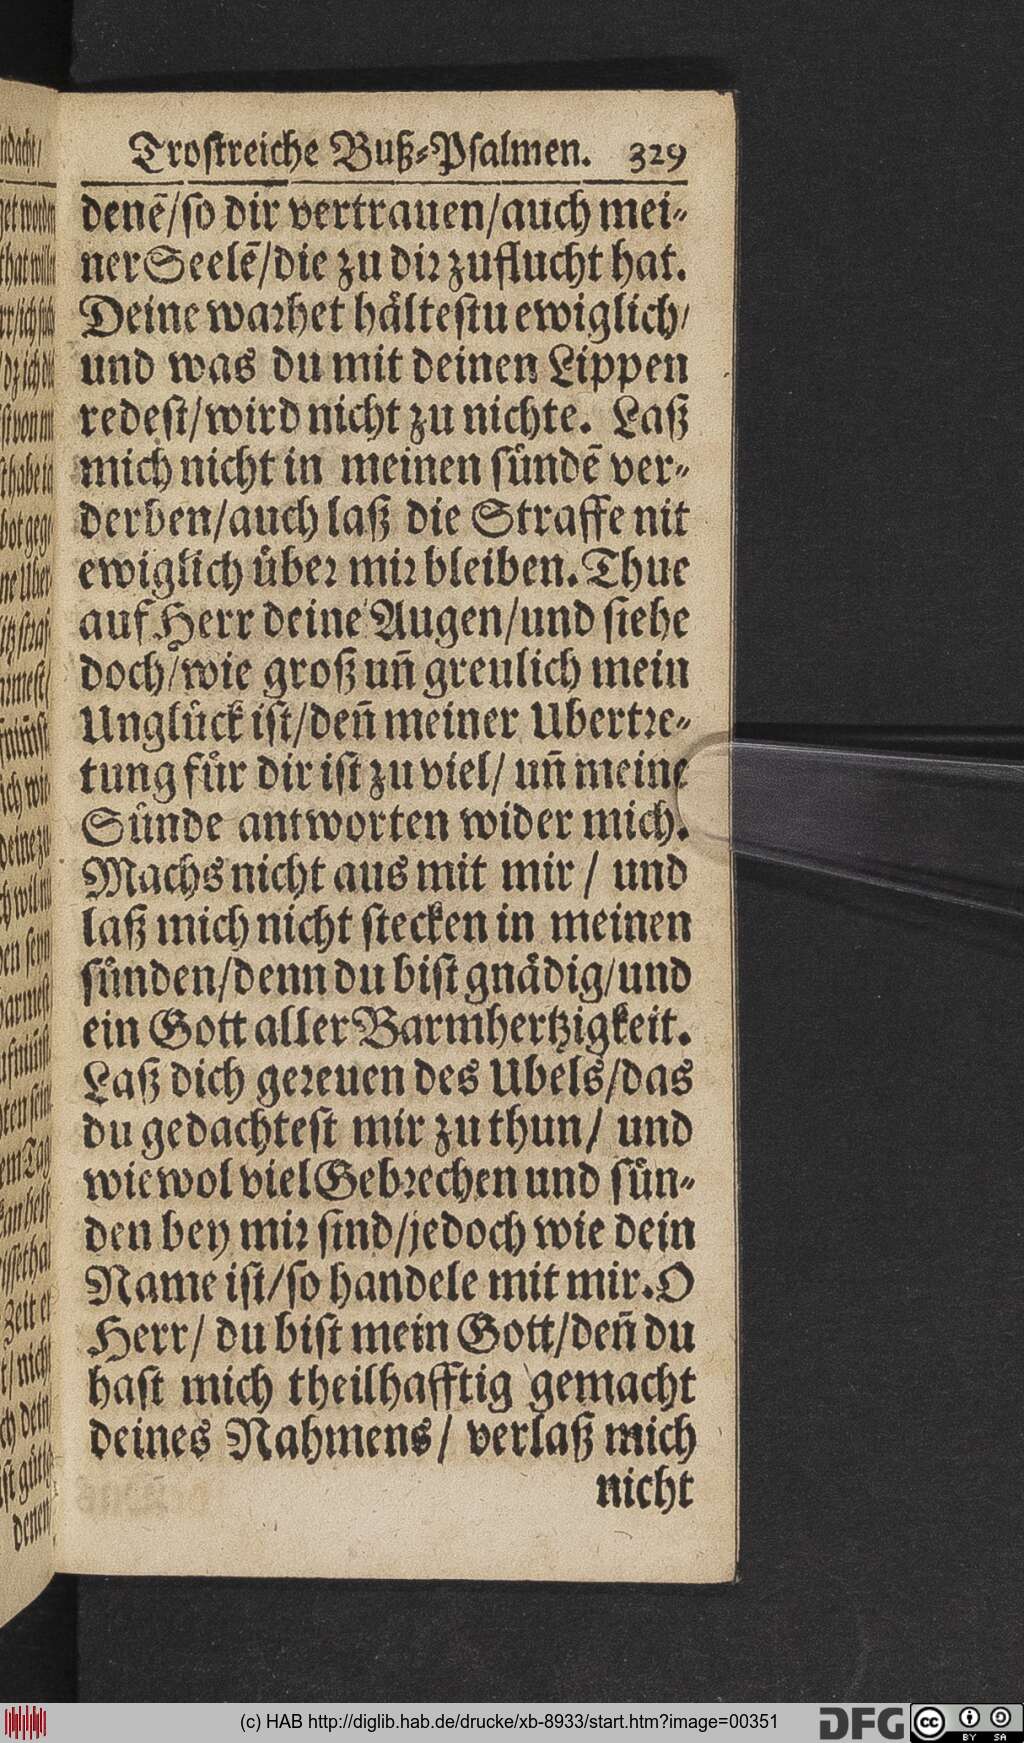 Trostreiche Buß-Psalmen. 329
denē/so dir vertrauen/auch mei-
ner Seelē/die zu dir zuflucht hat.
Deine warhet hältestu ewiglich/
und was du mit deinen Lippen
redest/wird nicht zu nichte. Laß
mich nicht in meinen sündē ver-
derben/auch laß die Straffe nit
ewiglich über mir bleiben. Thue
auf Herr deine Augen/und siehe
doch/wie groß uñ greulich mein
Unglück ist/deñ meiner Ubertre-
tung für dir ist zu viel/ uñ meine
Sünde antworten wider mich.
Machs nicht aus mit mir / und
laß mich nicht stecken in meinen
sünden/denn du bist gnädig/und
ein Gott aller Barmhertzigkeit.
Laß dich gereuen des Ubels/das
du gedachtest mir zu thun/ und
wiewol viel Gebrechen und sün-
den bey mir sind/jedoch wie dein
Name ist/so handele mit mir. O
Herr/ du bist mein Gott/deñ du
hast mich theilhafftig gemacht
deines Nahmens/ verlaß mich
nicht
(c) HAB http://diglib.hab.de/drucke/xb-8933/start.htm?image=00351
DFG
cc BY SA